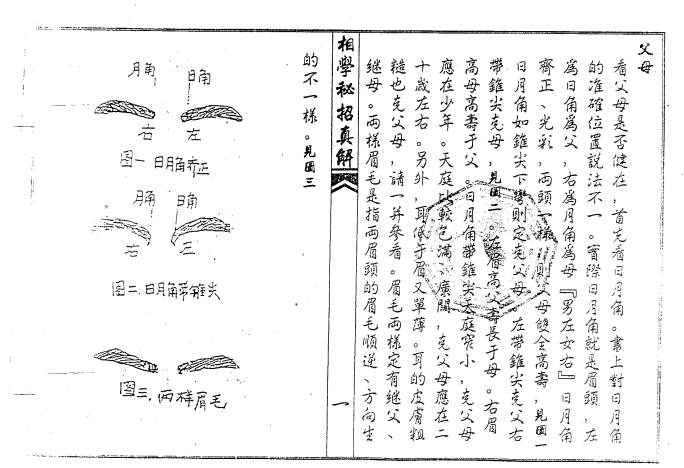 父母
看父母是否健在，首先看日月角。書上對日月角
的准確位置說法不一。實際日月角就是眉頭，左
爲日角爲父，右爲月角爲母『男左女右』日月角
齊正、光彩，兩頭一樣，則父母雙全高壽，見圖一
日月角如錐尖下彎則定克父母。左帶錐尖克父右
帶錐尖克母，見圖二。左眉高父壽長于母。右眉
高母高壽于父。日月角帶錐尖天庭窄小，克父母
應在少年。天庭比較包滿、廣闊，克父母應在二
十歲左右。另外，耳低于眉又單薄。耳的皮膚粗
糙也克父母，請一并參看。眉毛兩樣定有继父、
继母。兩樣眉毛是指兩眉頭的眉毛順逆、方向生
相學秘招真解
一
的不一樣。見圖三
月角 日角
右 左
图一日月角齐正
月角 日角
右 左
图二.日月角带锥尖
图三.两样眉毛